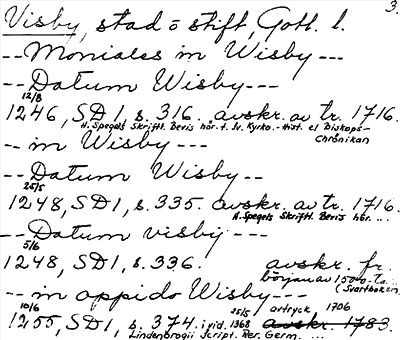 3.
Visby, stad o stift, Gotl. l.
-- Moniales in Wisby ---
-- Datum Wisby ---
12/8
1246, SD1, s. 316. avskr. av tr. 1716.
H. Spegels Skriftl. Bevis hör. t. Sv. Kyrko.-Hist. el Biskops-
Chrönikan
-- in Wisby ---
-- Datum Wisby --
25/5
1248, SD1, s. 335. avskr. av tr. 1716.
H. Spegels Skriftl. Bevis hör. ...
-- Datum visby ---
5/6
1248, SD1, s. 336. avskr. fr.
början av 1500-ta...
(Svartboken)
-- in oppido Wisby ---
10/6 25/5 avtryck 1706
1255, SD1, s. 374. i vid. 1368 avskr. 1783.
Lindenbrogii Script. Rer. Germ. ...